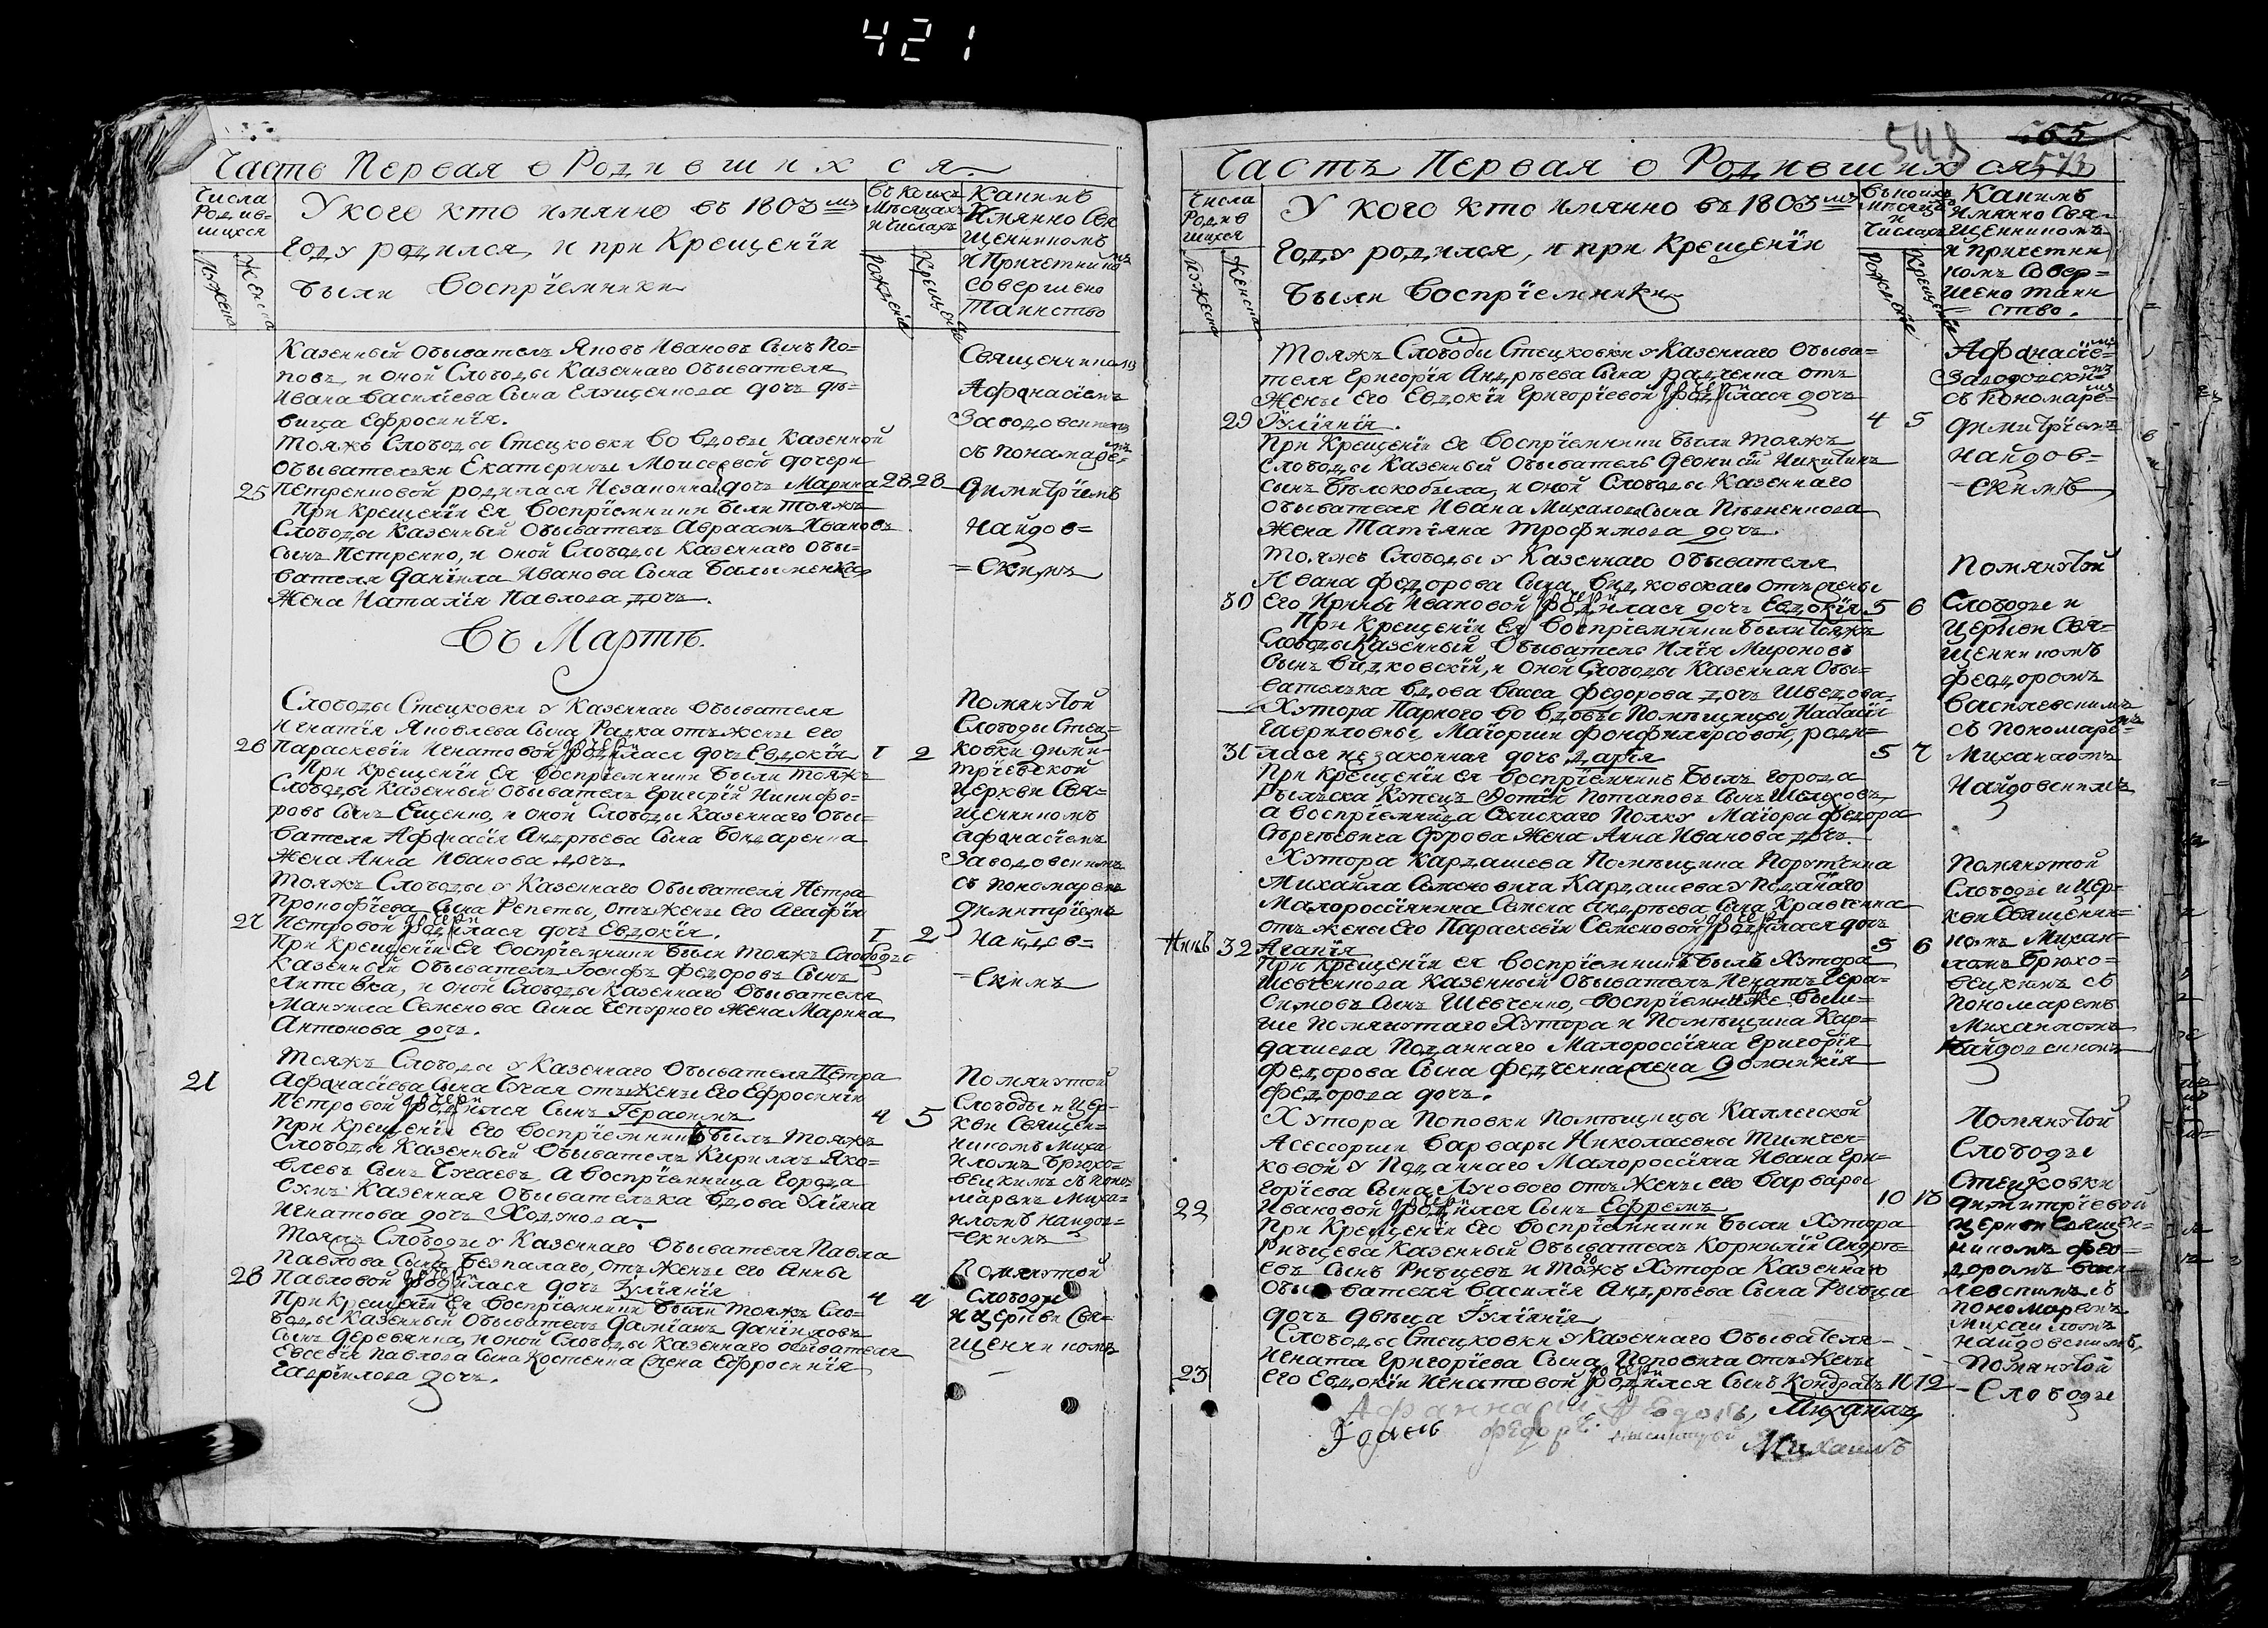 421
Часть Первая о Родившихся
Числа Родившихся
Мужеска
Женска
У кого кто имянно въ 1803мъ
году родился, и при Крещенїи
были Воспрїемники
Въ коихъ Мѣсяцахъ и числахъ
Рожденїе
Крещенїе
Какимъ
Имянно Свя
щенникомъ
и Причетникомъ
совершено
Таинство
Казенный Обыватель Яковъ Ивановъ Сынъ По=
повъ, и оной Слободы Казеннаго Обывателя
Ивана Василїева Сына Глущенкова дочь дѣ=
вица Ефросинїя.
Тояжъ Слободы Стецковки во вдовы Казенной
Обывательки Екатерины Моисеевой дочери
25 Петренковой родилася Незаконна дочь Марина 28 28
При крещенїи Ея Воспрїемники были Тояжъ
Слободы Казенный Обыватель Авраамъ Ивановъ
Сынъ Петренко, и оной Слободы Казеннаго Обы=
вателя Данїила Иванова Сына
Жена Наталїя Павлова дочь.
Священникомъ
Афанасїемъ
Заводовскимъ
съ пономаремъ
Димитрїемъ
Найдов=
=скимъ
Въ Мартѣ.
Слободы Стецковки у Казеннаго Обывателя
Игнатїя Яковлева Сына Радка отъ жены его
26 Параскевїи Игнатовой дочери родилася дочь Евдокїя 1 2
При крещенїи Ея Воспрїемники были Тояжъ
Слободы Казенный Обыватель Григорїй Никифо=
ровъ Сынъ Ещенко, и оной Слободы Казеннаго Обы=
вателя Афанасїя Андрѣева Сына Бондаренка
Жена Анна Иванова дочь
Помянутой
Слободы Стец=
ковки Дими=
трїевской
Церкви Свя=
щенникомъ
Афанасїемъ
Заводовскимъ
съ пономаремъ
Димитрїемъ
Найдов=
=скимъ
Тояжъ Слободы у Казеннаго Обывателя Петра
Прокофїева Сына Репеты, отъ жены его Агафїи
27 Петровой дочери родилася дочь Евдокїя. 1 2
При Крещенїи Ея Воспрїемники были Тояжъ Слободы
Казенный Обыватель Госифъ Федоровъ Сынъ
и оной Слободы Казеннаго Обывателя
Мануила Семенова Сына Чепурного Жена Марина
Антонова дочь.
Тояжъ Слободы у Казеннаго Обывателя Петра
21 Афанасїева Сына Бугая отъ Жены его Ефросинїи
Петровой дочери родился Сынъ Герасимъ 4 5
При Крещенїи Его Воспрїемникъ былъ Тояжъ
Слободы Казенный Обыватель Кириллъ Яко=
влевъ Сынъ Бугаевъ, А Воспрїемница Города
Сумъ Казенная Обывателька вдова Улїяна
Игнатова дочь Ходунова.
Помянутой
Слободы и Цер=
кви Священ=
никомъ Миха
иломъ Брюхо=
вецкимъ съ поно
маремъ Миха=
иломъ Найдов=
=скимъ
Тояжъ Слободы у Казеннаго Обывателя Павла
Павлова Сына Безпалаго, отъ жены его Анны
28 Павловой дочери родилася дочь Iулїянїя 4 4
При Крещенїи Ея Воспрїемники были Тояжъ Сло=
боды Казенный Обыватель Дамїанъ Данїиловъ
Сынъ Деревянка, и оной Слободы Казеннаго Обывателя
Евсевїя Павлова Сына Костенка Жена Ефросинїя
Гаврїилова дочь.
Помянутой
Слободы
и Церкви Свя=
щенникомъ
548
65
573
Часть Первая о Родившихся
Числа Родившихся
Мужеска
Женска
У кого кто имянно въ 1803мъ
году родился, и при крещенїи
были Воспрїемники
Въ коихъ мѣсяцахъ и числахъ
Рожденїе
Крещенїе
Какимъ
имянно Свя=
щенникомъ
и причетни
комъ Совер=
шено таин
=ство.
Тояжъ Слободы Стецковки у Казеннаго Обыва=
теля Григорїя Андрѣева Сына Радченка отъ
Жены Его Евдокїи Григорїевой дочери родилася дочь
29 Iулїянїя. 4 5
При Крещенїи Ея Воспрїемники были Тояжъ
Слободы Казенный Обыватель Деонисїй Никитинъ
Сынъ Бѣлокобыла, и оной Слободы Казеннаго
Обывателя Ивана Михайлова Сына
Жена Татїяна Трофимова дочь.
Афанасїемъ
Заводовскимъ
съ Пономаремъ
Димитрїемъ
Найдов=
=скимъ
Тояжъ Слободы у Казеннаго Обывателя
Ивана Федорова Сына Видковскаго отъ жены
30 Его Ирины Ивановой дочери родилася дочь Евдокїя 5 6
При Крещенїи Ея Воспрїемники были Тояжъ
Слободы Казенный Обыватель Илїя Мироновъ
Сынъ Видковскїй, и оной Слободы Казенная Обы=
вателька вдова Васса Федорова дочь Шведова.
Помянутой
Слободы и
Церкви Свя=
щенникомъ
Феодоромъ
Василевскимъ
съ Пономаремъ
Михаиломъ
Найдовскимъ
Хутора Парного во вдовы Помѣщицы Наталїи
Гавриловны Маїорши Фонфилярсовой, роди=
31 лася незаконная дочь Дарїя 5 7
При крещенїи ея Воспрїемникъ былъ города
Рыльска Купецъ Фотїй Потаповъ Сынъ Шелеховъ
а воспрїемница Сумскаго Полку Маїора Федора
Сергѣевича Сурова Жена Анна Иванова дочь.
Хутора Кардашева Помѣщика Порутчика
Михайла Семеновича Кардашева у Подданаго
Малороссїянина Семена Андрѣева Сына Кравченка
отъ жены Его Параскевїи Семеновой дочери родилася дочь
32 Агапїя 5 6
При Крещенїи ея Воспрїемникъ былъ Хутора
Шевченкова Казенный Обыватель Игнатъ Гера=
симовъ Сынъ Шевченко, Воспрїемницаже бывш=
ие помянутаго Хутора и Помѣщика Кар=
дашева Подданнаго Малороссїяна Григорїя
Федорова Сына Федченка жена Домникїя
Федорова дочь.
Помянутой
Слободы и Цер=
кви Священни=
комъ Михаи=
ломъ Брюхо=
вецкимъ съ
Пономаремъ
Михаиломъ
Найдовскимъ
Хутора Поповки Помѣщицы Каллежской
Асессорши Варвары Николаевны Тимчен=
ковой у Подданнаго Малороссїяна Ивана Гри=
горїева Сына Лугового отъ Жены его Варвары
22 Ивановой дочери родился Сынъ Ефремъ 10 18
При Крещенїи Его Воспрїемники были Хутора
Рибцева Казенный Обыватель Корнилїй Андрѣ=
евъ Сынъ Рибцевъ и тогожъ Хутора Казеннаго
Обывателя Василїя Андрѣева Сына Рыбца
дочь дѣвица Iулїянїя
Помянутой
Слободы
Стецковки
Димитрїевой
Церкви Священ=
никомъ Фео=
доромъ Васи=
левскимъ съ
пономаремъ
Михаиломъ
Найдовскимъ
Слободы Стецковки у Казеннаго Обывателя
Игната Григорїева Сына Поповича отъ Жены
23 Его Евдокїи Игнатовой дочери родился Сынъ Кондратъ 10 12
Помянутой
Слободы
Михаилъ
Михаилъ